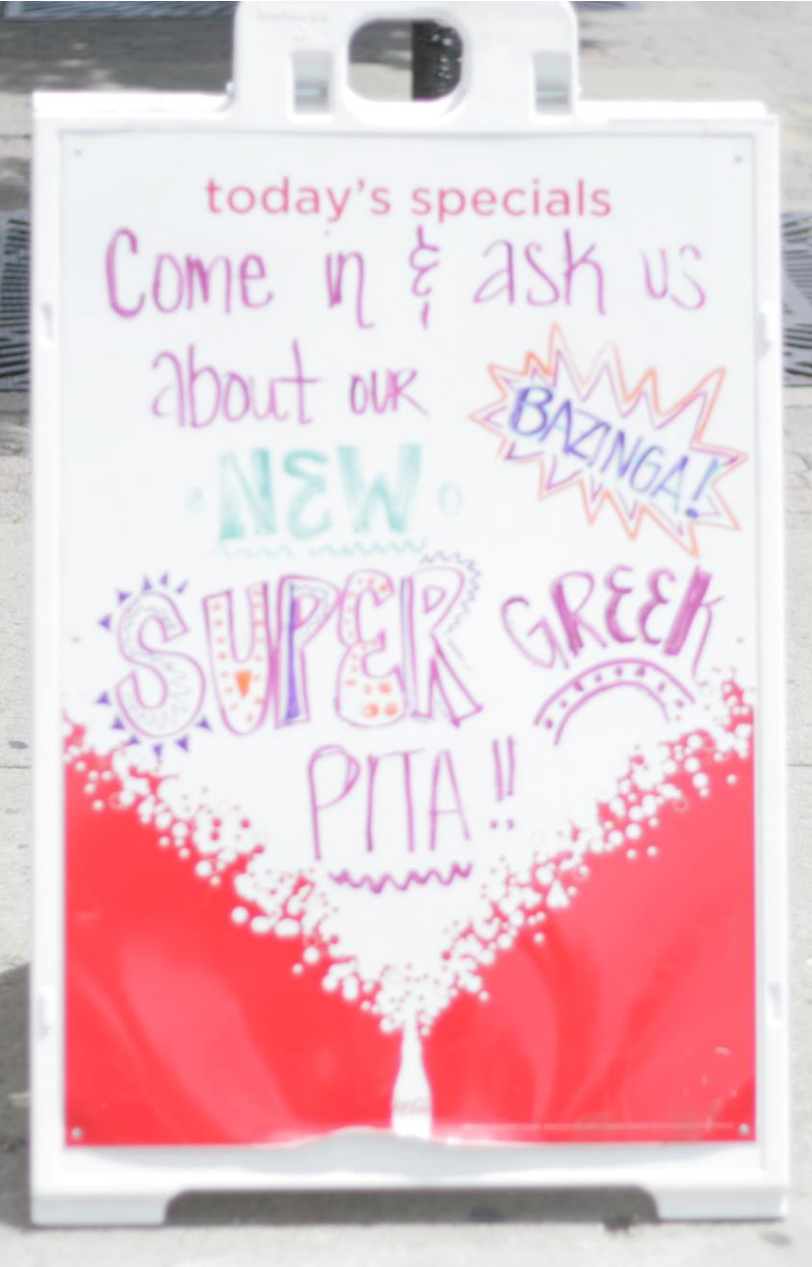 today's specials
Come in & ask us
about our
BAZINGA!
NEW
SUPER GREEK
PITA!!